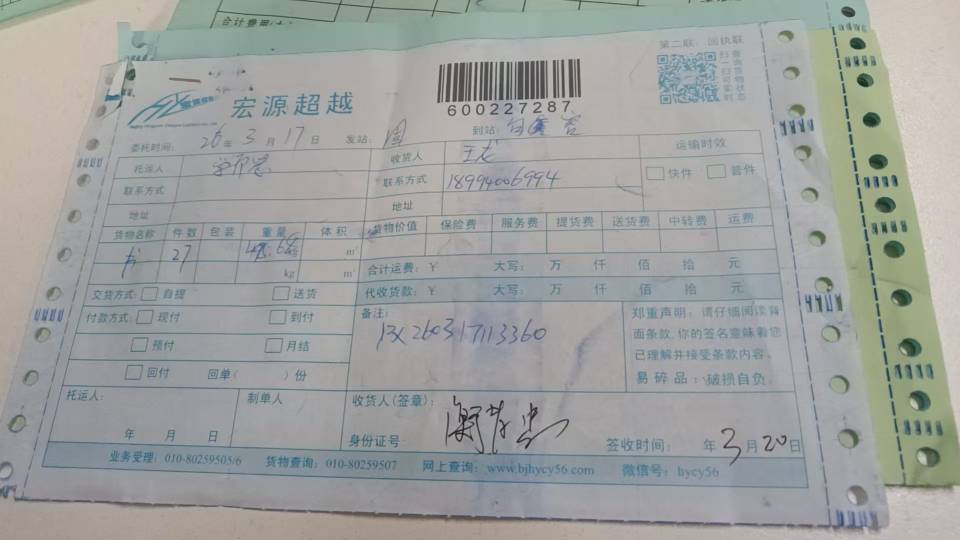 合计费用
第二联：回执联
扫一扫查询货物实时状态
宏源超越
600227287
委托时间： 26年 3月 17日 发站： 到站：
托运人 收货人 王龙 运输时效
联系方式 联系方式 18994006994 快件 普件
地址 地址
货物名称 件数 包装 重量 体积 货物价值 保险费 服务费 提货费 送货费 中转费 运费
书 27 kg m³
kg m³ 合计运费：￥ 大写： 万 仟 佰 拾 元
交货方式： 自提 送货 代收货款：￥ 大写： 万 仟 佰 拾 元
付款方式： 现付 到付 备注：
预付 月结
回付 回单（ ）份
郑重声明：请仔细阅读背
面条款，你的签名意味着您
已理解并接受条款内容。
易碎品：破损自负。
托运人： 制单人 收货人(签章)：
年 月 日 身份证号： 签收时间： 年 3月 20日
业务受理：010-80259505/6 货物查询：010-80259507 网上查询：www.bjhycy56.com 微信号：hycy56